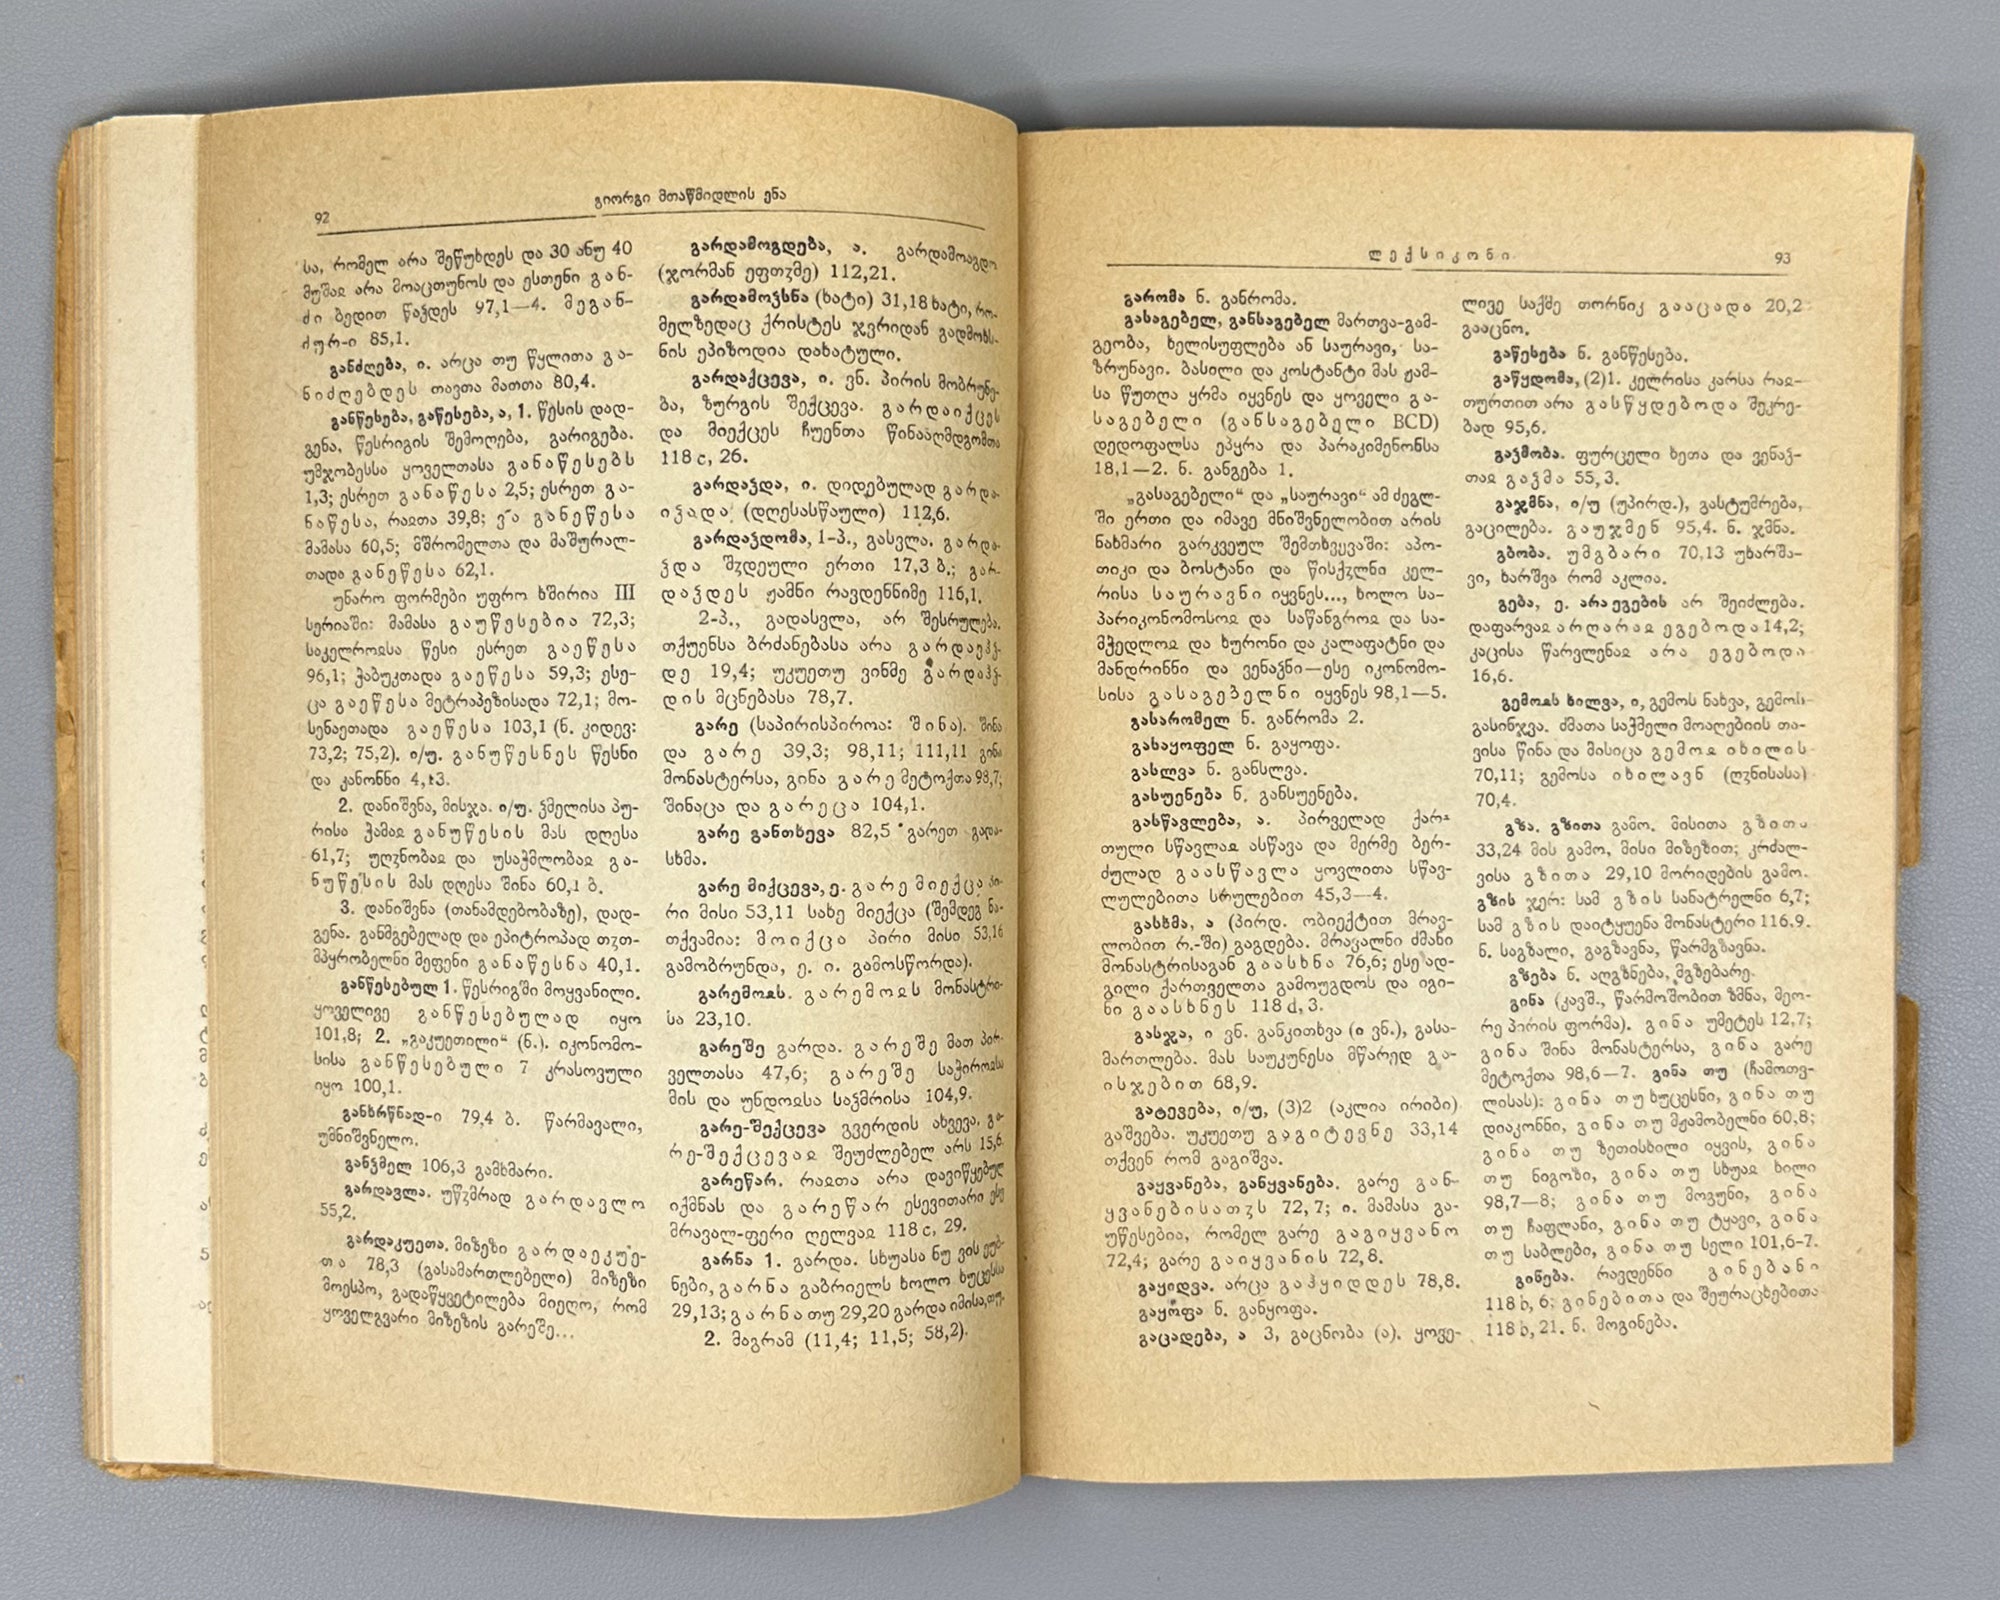 92
გიორგი მთაწმიდლის ენა
სა, რომელ არა შეწუხდეს და 30 ანუ 40
მუშაჲ არა მოაცთუნოს და ესთენი გან-
ძი ბედით წაჴდეს 97,1—4. მეგან-
ძურ-ი 85,1.
განძღება, ი. არცა თუ წყლითა გა-
ნიძღებდეს თავთა მათთა 80,4.
განწესება, გაწესება, ა, 1. წესის დად-
გენა, წესრიგის შემოღება, გარიგება.
უმჯობესსა ყოველთასა განაწესებს
1,3; ესრეთ განაწესა 2,5; ესრეთ გა-
ნაწესა, რაჲთა 39,8; ვ˜ა განეწესა
მამასა 60,5; მშრომელთა და მაშურალ-
თადა განეწესა 62,1.
უნარო ფორმები უფრო ხშირია III
სერიაში: მამასა გაუწესებია 72,3;
საკელროჲსა წესი ესრეთ გაეწესა
96,1; ჭაბუკთადა გაეწესა 59,3; ესე-
ცა გაეწესა მეტრაპეზისადა 72,1; მო-
სენაეთადა გაეწესა 103,1 (ნ. კიდევ:
73,2; 75,2). ი/უ. განუწესნეს წესნი
და კანონნი 4,13.
2. დანიშვნა, მისჯა. ი/უ. ჴმელისა პუ-
რისა ჭამაჲ განუწესის მას დღესა
61,7; უღჳნობაჲ და უსაჭმლობაჲ გა-
ნუწესის მას დღესა შინა 60,1 ბ.
3. დანიშვნა (თანამდებობაზე), დად-
გენა. განმგებელად და ეპიტროპად თჳთ-
მპყრობელნი მეფენი განაწესნა 40,1.
განწესებულ 1. წესრიგში მოყვანილი.
ყოველივე განწესებულად იყო
101,8; 2. „გაკუეთილი“ (ნ.). იკონომო-
სისა განწესებული 7 კრასოვული
იყო 100,1.
განხრწნად-ი 79,4 ბ. წარმავალი,
უმნიშვნელო.
განჴმელ 106,3 გამხმარი.
გარდავლა. უწჳმრად გარდავლო
55,2.
გარდაკუეთა. მიზეზი გარდაეკუე-
თა 78,3 (გასამართლებელი) მიზეზი
მოესპო, გადაწყვეტილება მიეღო, რომ
ყოველგვარი მიზეზის გარეშე...
გარდამოგდება, ა. გარდამოაგდო
(ჯორმან ეფთჳმე) 112,21.
გარდამოჴსნა (ხატი) 31,18 ხატი, რო-
მელზედაც ქრისტეს ჯვრიდან გადმოხს-
ნის ეპიზოდია დახატული.
გარდაქცევა, ი. ვნ. პირის მობრუნე-
ბა, ზურგის შექცევა. გარდაიქცეს
და მიექცეს ჩუენთა წინააღმდგომთა
118 c, 26.
გარდაჴდა, ი. დიდებულად გარდა-
იჴადა (დღესასწაული) 112,6.
გარდაჴდომა, 1-პ., გასვლა. გარდა-
ჴდა შჳდეული ერთი 17,3 ბ.; გარ-
დაჴდეს ჟამნი რავდენნიმე 116,1.
2-პ., გადასვლა, არ შესრულება.
თქუენსა ბრძანებასა არა გარდაეჰჴ-
დე 19,4; უკუეთუ ვინმე გარდაჰჴ-
დის მცნებასა 78,7.
გარე (საპირისპიროა: შინა). შინა
და გარე 39,3; 98,11; 111,11 გინა
მონასტერსა, გინა გარე მეტოქთა 98,7;
შინაცა და გარეცა 104,1.
გარე განთხევა 82,5 გარეთ გადა-
სხმა.
გარე მიქცევა, ე. გარე მიექცა პი-
რი მისი 53,11 სახე მიექცა (შემდეგ ნა-
თქვამია: მოიქცა პირი მისი 53,16
გამობრუნდა, ე. ი. გამოსწორდა).
გარემოჲს. გარემოჲს მონასტრი-
სა 23,10.
გარეშე გარდა. გარეშე მათ პირ-
ველთასა 47,6; გარეშე საჭიროჲსა
მის და უნდოჲსა საჴმრისა 104,9.
გარე-შექცევა გვერდის ახვევა. გა-
რე-შექცევაჲ შეუძლებელ არს 15,6.
გარეწარ. რაჲთა არა დავიწყებულ
იქმნას და გარეწარ ესევითარი ესე
მრავალ-ფერი ღელვაჲ 118 c, 29.
გარნა 1. გარდა. სხუასა ნუ ვის ეუბ-
ნები, გარნა გაბრიელს ხოლო ხუცესსა
29,13; გარნა თუ 29,20 გარდა იმისა, თუ.
2. მაგრამ (11,4; 11,5; 58,2).
ლექსიკონი
93
გარომა ნ. განრომა.
გასაგებელ, განსაგებელ მართვა-გამ-
გეობა, ხელისუფლება ან საურავი, სა-
ზრუნავი. ბასილი და კოსტანტი მას ჟამ-
სა წუთღა ყრმა იყვნეს და ყოველი გა-
საგებელი (განსაგებელი BCD)
დედოფალსა ეპყრა და პარაკიმენონსა
18,1—2. ნ. განგება 1.
„გასაგებელი“ და „საურავი“ ამ ძეგლ-
ში ერთი და იმავე მნიშვნელობით არის
ნახმარი გარკვეულ შემთხვევაში: აპო-
თიკი და ბოსტანი და წისქჳლნი კელ-
რისა საურავნი იყვნეს..., ხოლო სა-
პარიკონომოსოჲ და საწანგროჲ და სა-
მჭედლოჲ და ხურონი და კალაფატნი და
მანდრინნი და ვენაჴნი—ესე იკონომო-
სისა გასაგებელნი იყვნეს 98,1—5.
გასარომელ ნ. განრომა 2.
გასაყოფელ ნ. გაყოფა.
გასლვა ნ. განსლვა.
გასუენება ნ. განსუენება.
გასწავლება, ა. პირველად ქარ-
თული სწავლაჲ ასწავა და მერმე ბერ-
ძულად გაასწავლა ყოვლითა სწავ-
ლულებითა სრულებით 45,3—4.
გასხმა, ა (პირდ. ობიექტით მრავ-
ლობით რ.-ში) გაგდება. მრავალნი ძმანი
მონასტრისაგან გაასხნა 76,6; ესე ად-
გილი ქართველთა გამოუგდოს და იგი-
ნი გაასხნეს 118 d, 3.
გასჯა, ი ვნ. განკითხვა (ი ვნ.), გასა-
მართლება. მას საუკუნესა მწარედ გა-
ისჯებით 68,9.
გატევება, ი/უ, (3)2 (აკლია ირიბი)
გაშვება. უკუეთუ გაგიტევნე 33,14
თქვენ რომ გაგიშვა.
გაყვანება, განყვანება. გარე გან-
ყვანებისათჳს 72,7; ი. მამასა გა-
უწესებია, რომელ გარე გაგიყვანო
72,4; გარე გაიყვანის 72,8.
გაყიდვა. არცა გაჰყიდდეს 78,8.
გაყოფა ნ. განყოფა.
გაცადება, ა 3, გაცნობა (ა). ყოვე-
ლივე საქმე თორნიკ გააცადა 20,2
გააცნო.
გაწესება ნ. განწესება.
გაწყდომა, (2)1. კელრისა კარსა რაჲ-
თურთით არა გასწყდებოდა შეკრე-
ბად 95,6.
გაჴმობა. ფურცელი ხეთა და ვენაჴ-
თაჲ გაჴმა 55,3.
გაჯმნა, ი/უ (უპირდ.), გასტუმრება,
გაცილება. გაუჯმენ 95,4. ნ. ჯმნა.
გბობა. უმგბარი 70,13 უხარშა-
ვი, ხარშვა რომ აკლია.
გება, ე. არა ეგების არ შეიძლება.
დაფარვაჲ არღარაჲ ეგებოდა 14,2;
კაცისა წარვლენაჲ არა ეგებოდა
16,6.
გემოჲს ხილვა, ი, გემოს ნახვა, გემოს
გასინჯვა. ძმათა საჭმელი მოაღებიის თა-
ვისა წინა და მისიცა გემოჲ იხილის
70,11; გემოსა იხილავნ (ღჳნისასა)
70,4.
გზა. გზითა გამო. მისითა გზითა
33,24 მის გამო, მისი მიზეზით; კრძალ-
ვისა გზითა 29,10 მორიდების გამო.
გზის ჯერ: სამ გზის სანატრელნი 6,7;
სამ გზის დაიტყუენა მონასტერი 116,9.
ნ. საგზალი, გაგზავნა, წარმგზავნა.
გზება ნ. აღგზნება, მგზებარე.
გინა (კავშ., წარმოშობით ზმნა, მეო-
რე პირის ფორმა). გინა უმეტეს 12,7;
გინა შინა მონასტერსა, გინა გარე
მეტოქთა 98,6—7. გინა თუ (ჩამოთვ-
ლისას): გინა თუ ხუცესნი, გინა თუ
დიაკონნი, გინა თუ მჟამობელნი 60,8;
გინა თუ ზეთისხილი იყვის, გინა
თუ ნიგოზი, გინა თუ სხუაჲ ხილი
98,7—8; გინა თუ მოგუნი, გინა
თუ ჩაფლანი, გინა თუ ტყავი, გინა
თუ საბლები, გინა თუ სელი 101,6-7.
გინება. რავდენნი გინებანი
118 b, 6; გინებითა და შეურაცხებითა
118 b, 21. ნ. მოგინება.